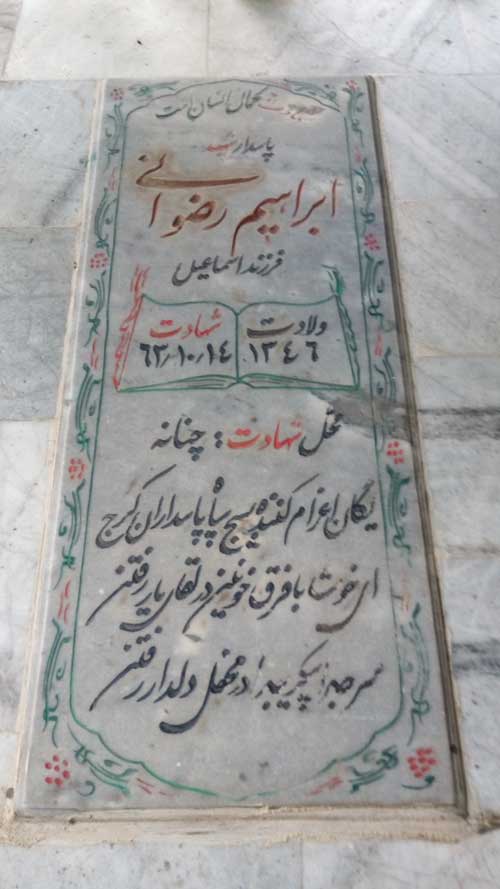 شهادت کمال انسان است
پاسدار شهید
ابراهیم رضوانی
فرزند اسماعیل
ولادت شهادت
۱۳۴۶ ۶۳٫۱۰٫۱۴
محل شهادت : چنانه
یگان اعزام کننده بسیج سپاه پاسداران کرج
ای خوشا با فرق خونین در لقای یار رفتن
سر جدا پیکر جدا در محفل دلدار رفتن